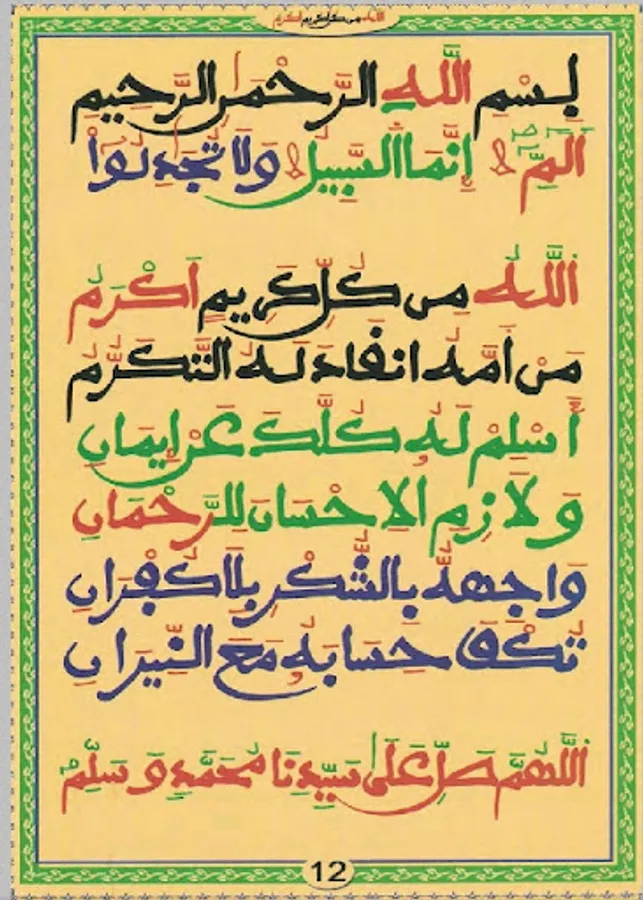 اللَّهُ مِن كُلِّ كَرِيمٍ أَكْرَمُ
بِسْمِ اللَّهِ الرَّحْمَنِ الرَّحِيمِ
الَمِّ إِنَّمَا السَّبِيلُ وَلَا تُجَدِلُوا
اللَّهُ مِن كُلِّ كَرِيمٍ أَكْرَمُ
مَن أَمَّهُ انقَادَ لَهُ التَّكَرُّمُ
أَسْلِمْ لَهُ كُلَّكَ عَن إِيمَانِ
وَلَازِمِ الِاحْسَانَ لِلرَّحْمَانِ
وَاجِهْهُ بِالشُّكْرِ بِلَا كُفْرَانِ
تُكْفَ حِسَابَهُ مَعَ النِّيرَانِ
اللَّهُمَّ صَلِّ عَلَى سَيِّدِنَا مُحَمَّدٍ وَسَلِّمْ
12